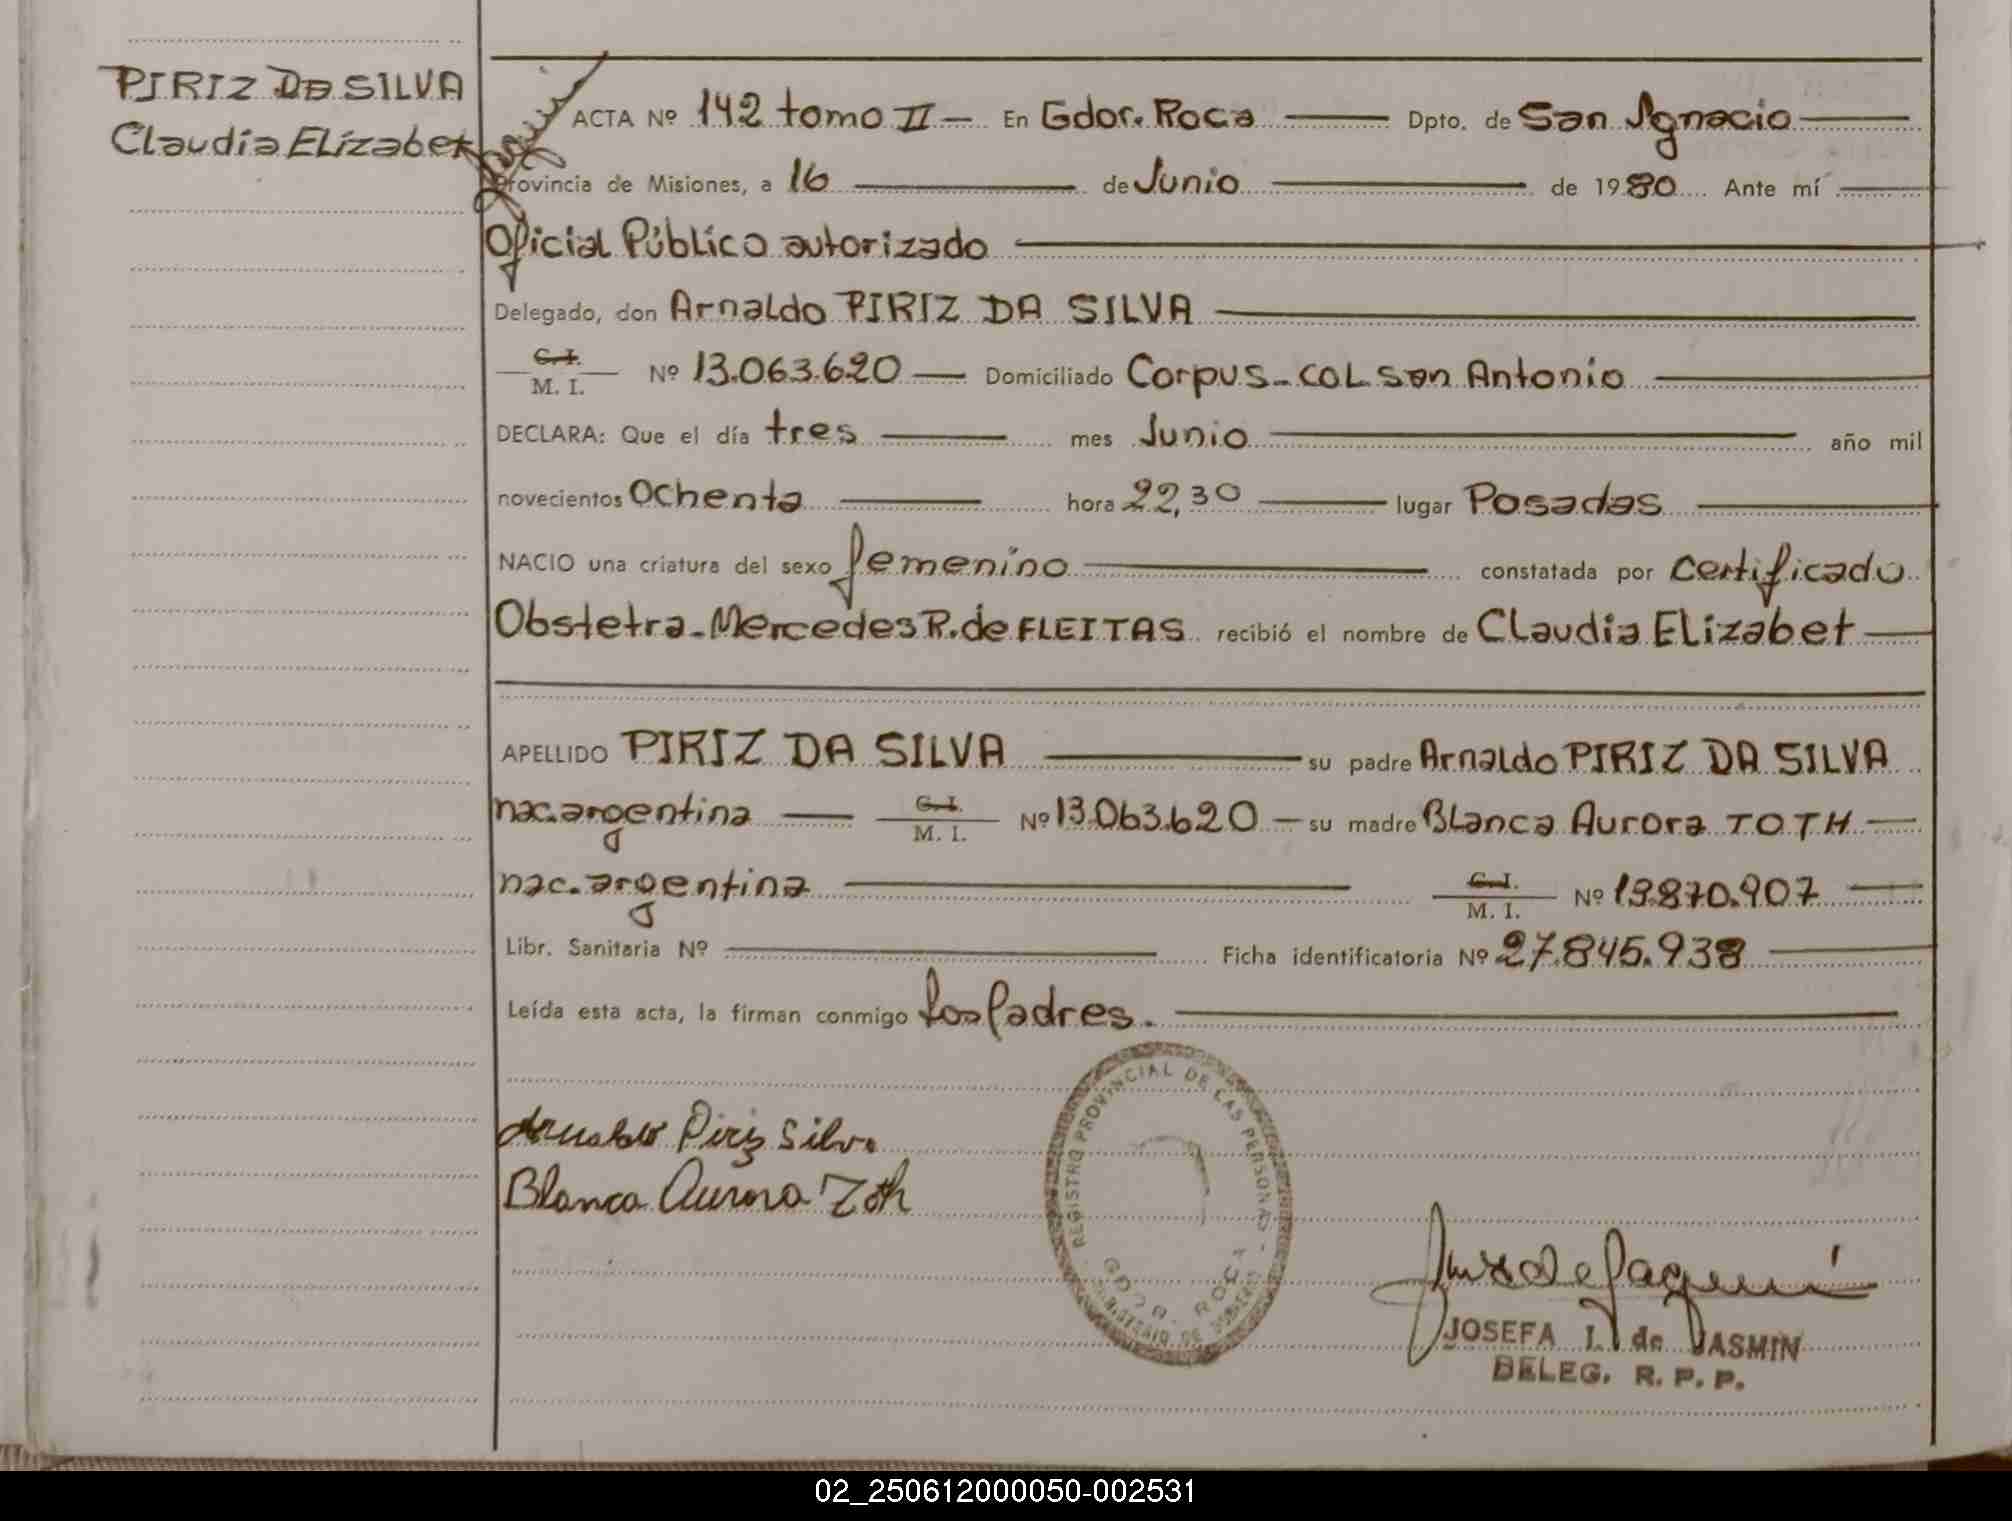 PIRIZ DA SILVA
Claudia Elizabet
ACTA Nº 142 tomo II — En Gdor. Roca Dpto. de San Ignacio
Provincia de Misiones, a 16 de Junio de 1980 Ante mí
Oficial Público autorizado
Delegado, don Arnaldo PIRIZ DA SILVA
C. I.
M. I. Nº 13.063.620 — Domiciliado Corpus - COL. San Antonio
DECLARA: Que el día tres mes Junio año mil
novecientos Ochenta hora 22,30 lugar Posadas
NACIO una criatura del sexo femenino constatada por certificado
Obstetra - Mercedes R. de FLEITAS recibió el nombre de Claudia Elizabet
APELLIDO PIRIZ DA SILVA su padre Arnaldo PIRIZ DA SILVA
nac. argentina C. I. M. I. Nº 13.063.620 — su madre Blanca Aurora TOTH
nac. argentina C. I. M. I. Nº 13.870.907
Libr. Sanitaria Nº Ficha identificatoria Nº 27.845.938
Leída esta acta, la firman conmigo los Padres.
Arnaldo Piriz Silva
Blanca Aurora Toth
REGISTRO PROVINCIAL DE LAS PERSONAS
GDOR. ROCA
MINISTERIO DE GOBIERNO
JOSEFA I. de JASMIN
DELEG. R. P. P.
02_250612000050-002531